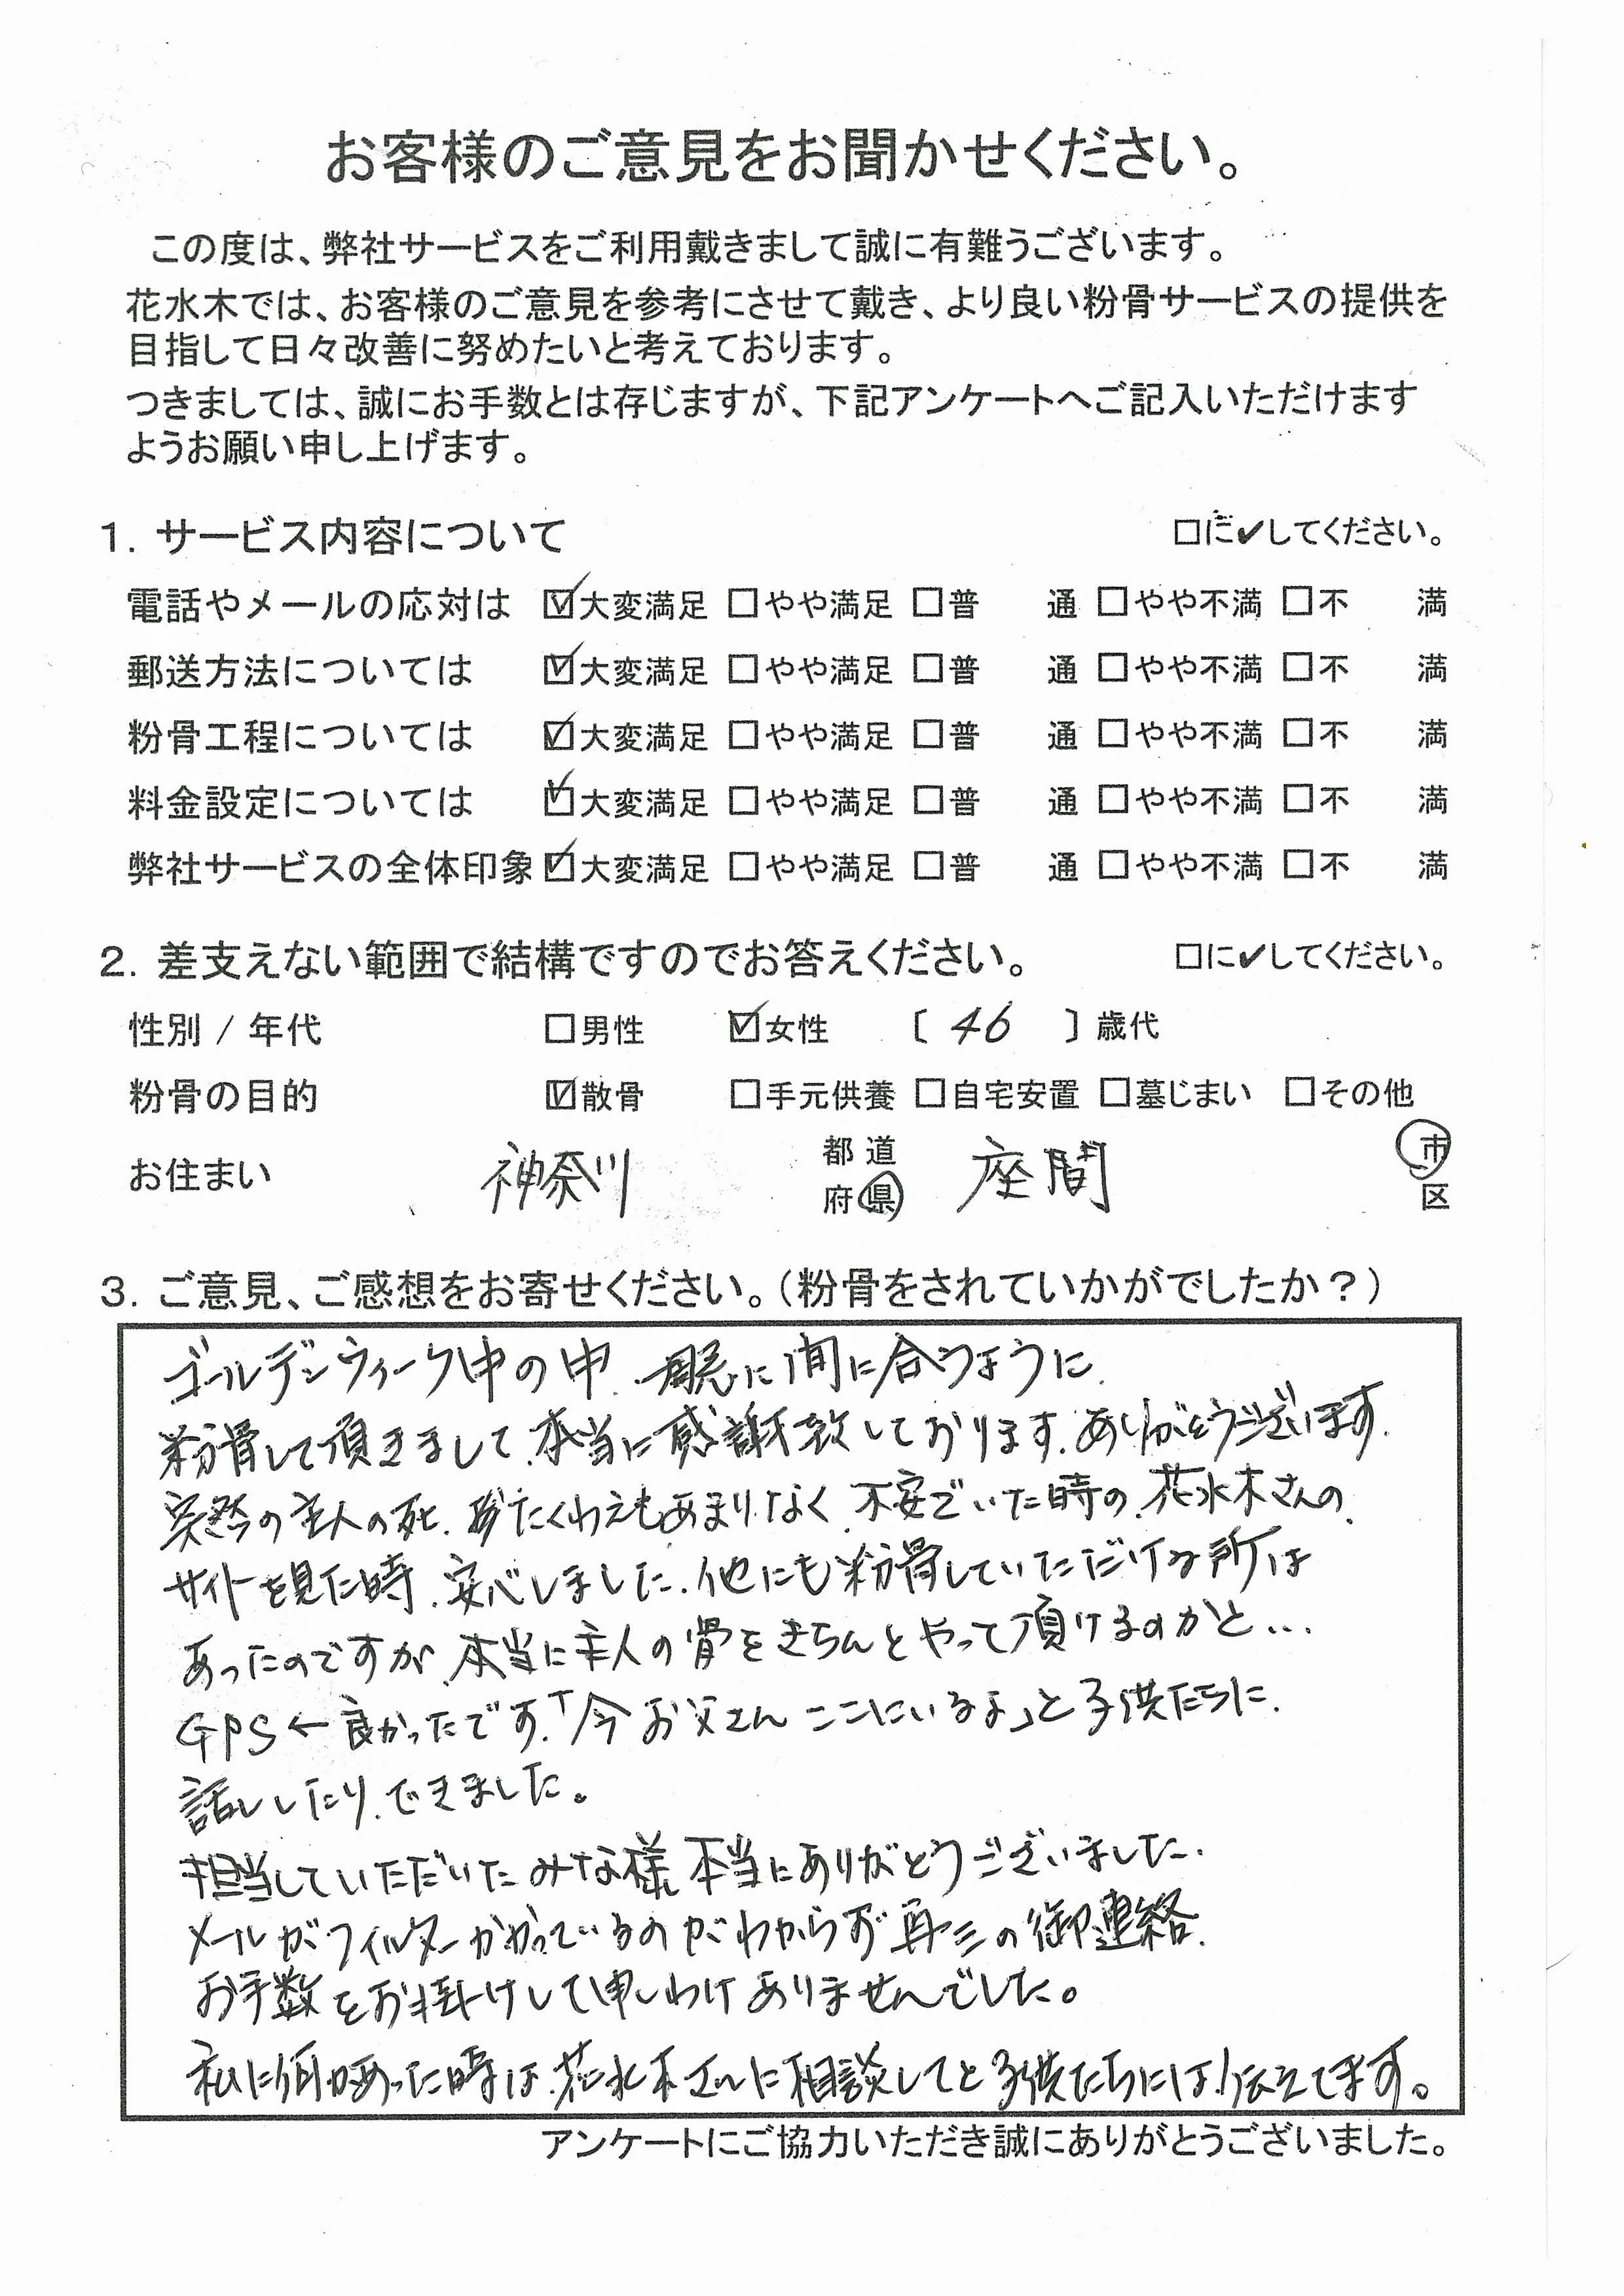 お客様のご意見をお聞かせください。
この度は、弊社サービスをご利用戴きまして誠に有難うございます。
花水木では、お客様のご意見を参考にさせて戴き、より良い粉骨サービスの提供を
目指して日々改善に努めたいと考えております。
つきましては、誠にお手数とは存じますが、下記アンケートへご記入いただけます
ようお願い申し上げます。
1. サービス内容について □に✔してください。
電話やメールの応対は ☑大変満足 □やや満足 □普 通 □やや不満 □不 満
郵送方法については ☑大変満足 □やや満足 □普 通 □やや不満 □不 満
粉骨工程については ☑大変満足 □やや満足 □普 通 □やや不満 □不 満
料金設定については ☑大変満足 □やや満足 □普 通 □やや不満 □不 満
弊社サービスの全体印象 ☑大変満足 □やや満足 □普 通 □やや不満 □不 満
2. 差支えない範囲で結構ですのでお答えください。 □に✔してください。
性別 / 年代 □男性 ☑女性 〔 46 〕歳代
粉骨の目的 ☑散骨 □手元供養 □自宅安置 □墓じまい □その他
お住まい 神奈川 都道府県 座間 市区
3. ご意見、ご感想をお寄せください。（粉骨をされていかがでしたか？）
ゴールデンウィーク中の中、に間に合うように、
粉骨して頂きまして、本当に感謝致しております。ありがとうございます。
突然の主人の死、たくわえもあまりなく、不安でいた時の、花水木さんの、
サイトを見た時、安心しました。他にも粉骨していただける所は
あったのですが、本当に主人の骨をきちんとやって頂けるのかと…
GPS←良かったです。「今お父さんここにいるよ」と子供たちに、
話ししたり、できました。
担当していただいたみな様、本当にありがとうございました。
メールがフィルターかかっているのがわからず再三の御連絡、
お手数をお掛けして申しわけありませんでした。
私に何かあった時は、花水木さんに相談してと子供たちには伝えてます。
アンケートにご協力いただき誠にありがとうございました。